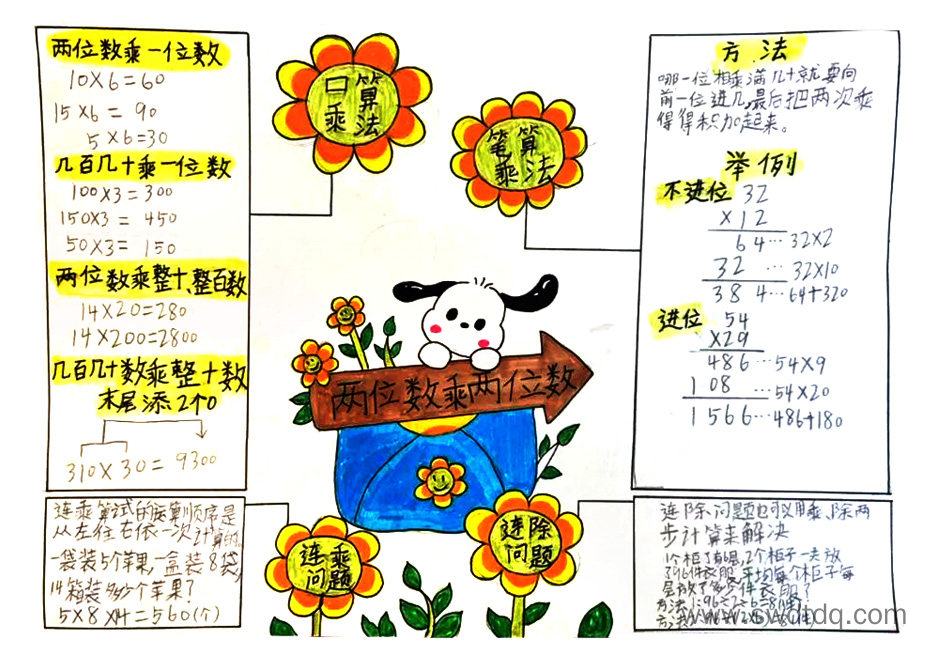 两位数乘一位数
10×6=60
15×6= 90
5×6=30
几百几十乘一位数
100×3=300
150×3= 450
50×3= 150
两位数乘整十、整百数
14×20=280
14×200=2800
几百几十数乘整十数
末尾添2个0
310×30= 9300
口算
乘法
笔算
乘法
方法
哪一位相乘满几十就要向
前一位进几,最后把两次乘
得得积加起来。
举例
不进位 32
×12
64…32×2
32 …32×10
384…64+320
进位 54
×29
486…54×9
108 …54×20
1566…486+180
两位数乘两位数
连乘算式的运算顺序是
从左往右依一次计算的
一袋装5个苹果,一盒装8袋,
14箱装多少个苹果?
5×8×14=560(个)
连乘
问题
连除
问题
连除问题也可以用乘、除两
步计算来解决
1个柜了有6层,2个柜子一共放
了96件衣服,平均每个柜子每
层放了多少件衣服?
方法1:96÷2÷6=8(件)
方法
www.ywdtdq.com